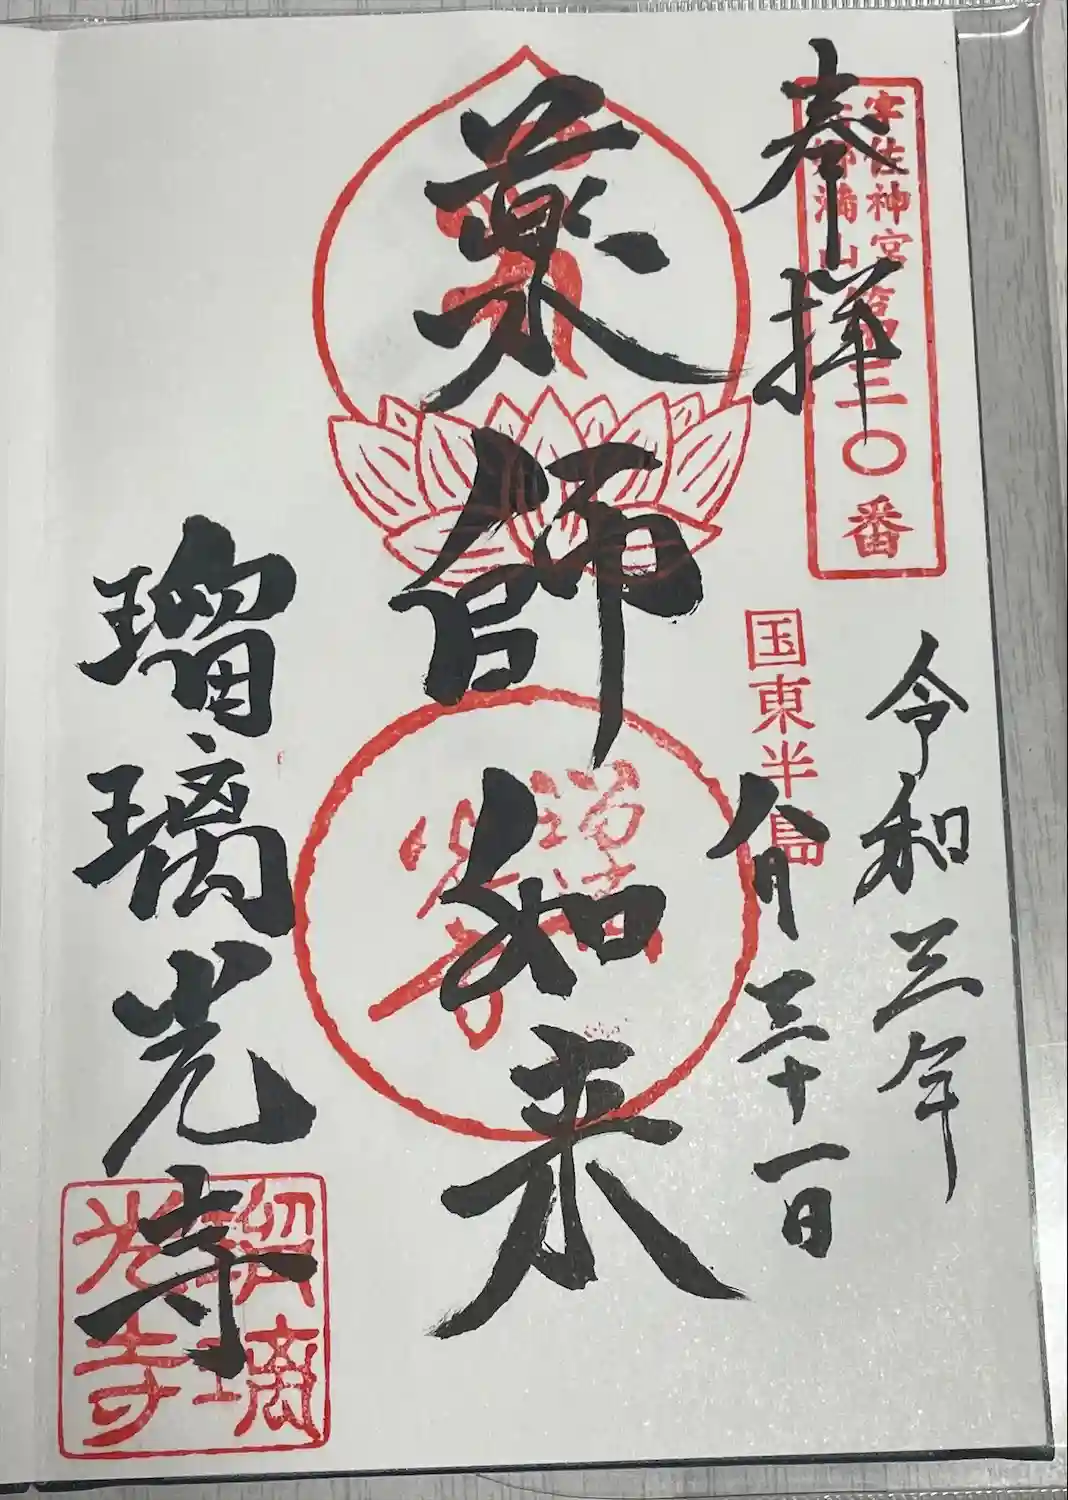 奉拝
宇佐神宮
六郷満山
第三〇番
国東半島
令和三年
八月三十一日
薬師如来
瑠璃光寺
瑠璃
光寺
瑠璃
光寺